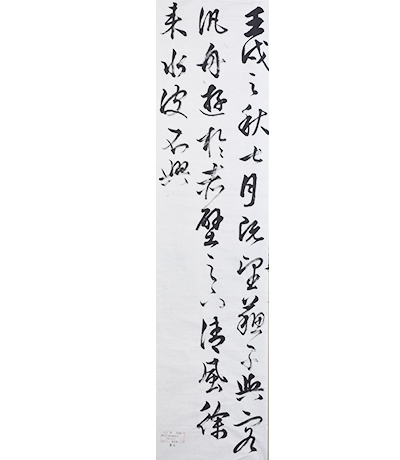 壬戌之秋七月既望蘇子與客
汎舟遊於赤壁之下清風徐
来水波不興